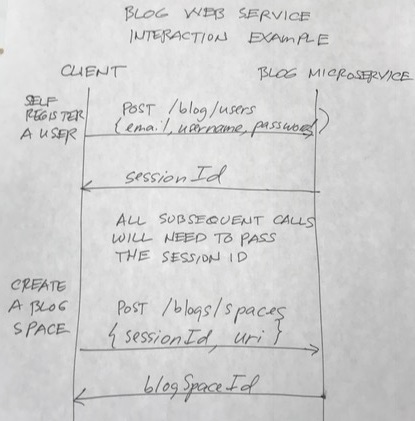 BLOG WEB SERVICE
INTERACTION EXAMPLE
CLIENT
BLOG MICROSERVICE
SELF
REGISTER
A USER
POST /blog/users
{email, username, password}
sessionId
ALL SUBSEQUENT CALLS
WILL NEED TO PASS
THE SESSION ID
CREATE
A BLOG
SPACE
POST /blogs/spaces
{sessionId, uri}
blogSpaceId